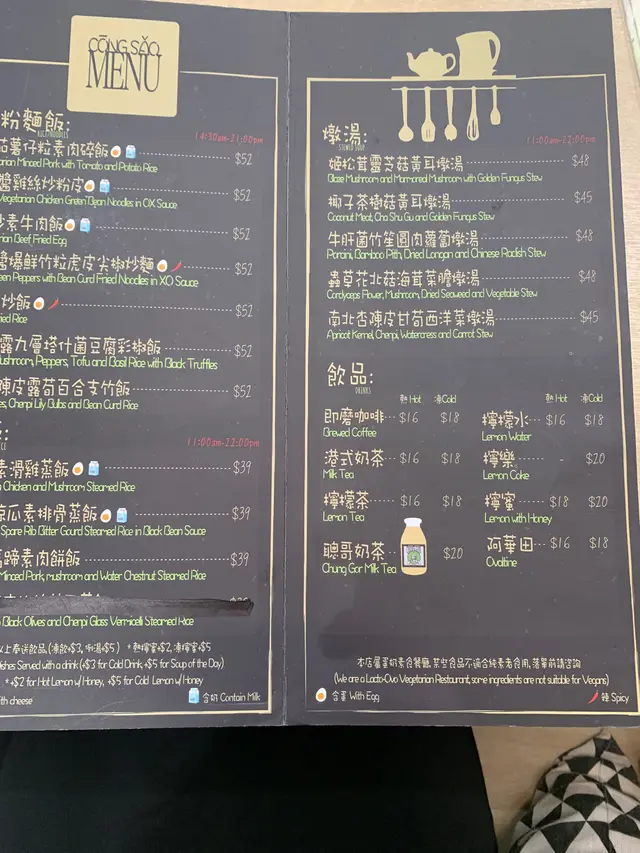 CŌNG SĂO
MENU
粉麵飯:
RICE/NOODLES
14:30am-21:00pm
茄薯仔粒素肉碎飯 $52
arian Minced Pork with Tomato and Potato Rice
醬雞絲炒粉皮 $52
Vegetarian Chicken Green Bean Noodles in OX Sauce
炒素牛肉飯 $52
rian Beef Fried Egg
醬爆鮮竹粒虎皮尖椒炒麵 $52
een Peppers with Bean Curd Fried Noodles in XO Sauce
炒飯 $52
ried Rice
露九層塔什菌豆腐彩椒飯 $52
ushroom, Peppers, Tofu and Basil Rice with Black Truffles
陳皮露荀百合支竹飯 $52
es, Chenpi Lily Bulbs and Bean Curd Rice
11:00am-22:00pm
素滑雞蒸飯 $39
n Chicken and Mushroom Steamed Rice
涼瓜素排骨蒸飯 $39
Spare Rib Bitter Gourd Steamed Rice in Black Bean Sauce
馬蹄素肉餅飯 $39
Minced Pork, mushroom and Water Chestnut Steamed Rice
n Black Olives and Chenpi Glass Vermicelli Steamed Rice
以上奉送飲品(凍飲+$3, 啲湯+$5) *熱檸蜜+$2, 凍檸蜜+$5
ishes Served with a drink (+$3 for Cold Drink, +$5 for Soup of the Day)
*+$2 for Hot Lemon w/ Honey, +$5 for Cold Lemon w/ Honey
ith cheese
含奶 Contain Milk
燉湯:
STEWED SOUP
11:00am-22:00pm
姬松茸靈芝菇黃耳燉湯 $48
Blaze Mushroom and Marmoreal Mushroom with Golden Fungus Stew
椰子茶樹菇黃耳燉湯 $45
Coconut Meat, Cha Shu Gu and Golden Fungus Stew
牛肝菌竹笙圓肉蘿蔔燉湯 $48
Porcini, Bamboo Pith, Dried Longan and Chinese Radish Stew
蟲草花北菇海茸菜膽燉湯 $48
Cordyceps Flower, Mushroom, Dried Seaweed and Vegetable Stew
南北杏陳皮甘荀西洋菜燉湯 $45
Apricot Kernel, Chenpi, Watercress and Carrot Stew
飲品:
DRINKS
熱 Hot 凍Cold 熱 Hot 凍Cold
即磨咖啡 $16 $18 檸檬水 $16 $18
Brewed Coffee Lemon Water
港式奶茶 $16 $18 檸樂 $20
Milk Tea Lemon Coke
檸檬茶 $16 $18 檸蜜 $18 $20
Lemon Tea Lemon with Honey
聰哥奶茶 $20 阿華田 $16 $18
Chung Gor Milk Tea Ovaltine
本店屬蛋奶素食餐廳, 某些食品不適合純素者食用, 落單前請咨詢
(We are a Lacto-Ovo Vegetarian Restaurant, some ingredients are not suitable for Vegans)
含蛋 With Egg 辣 Spicy